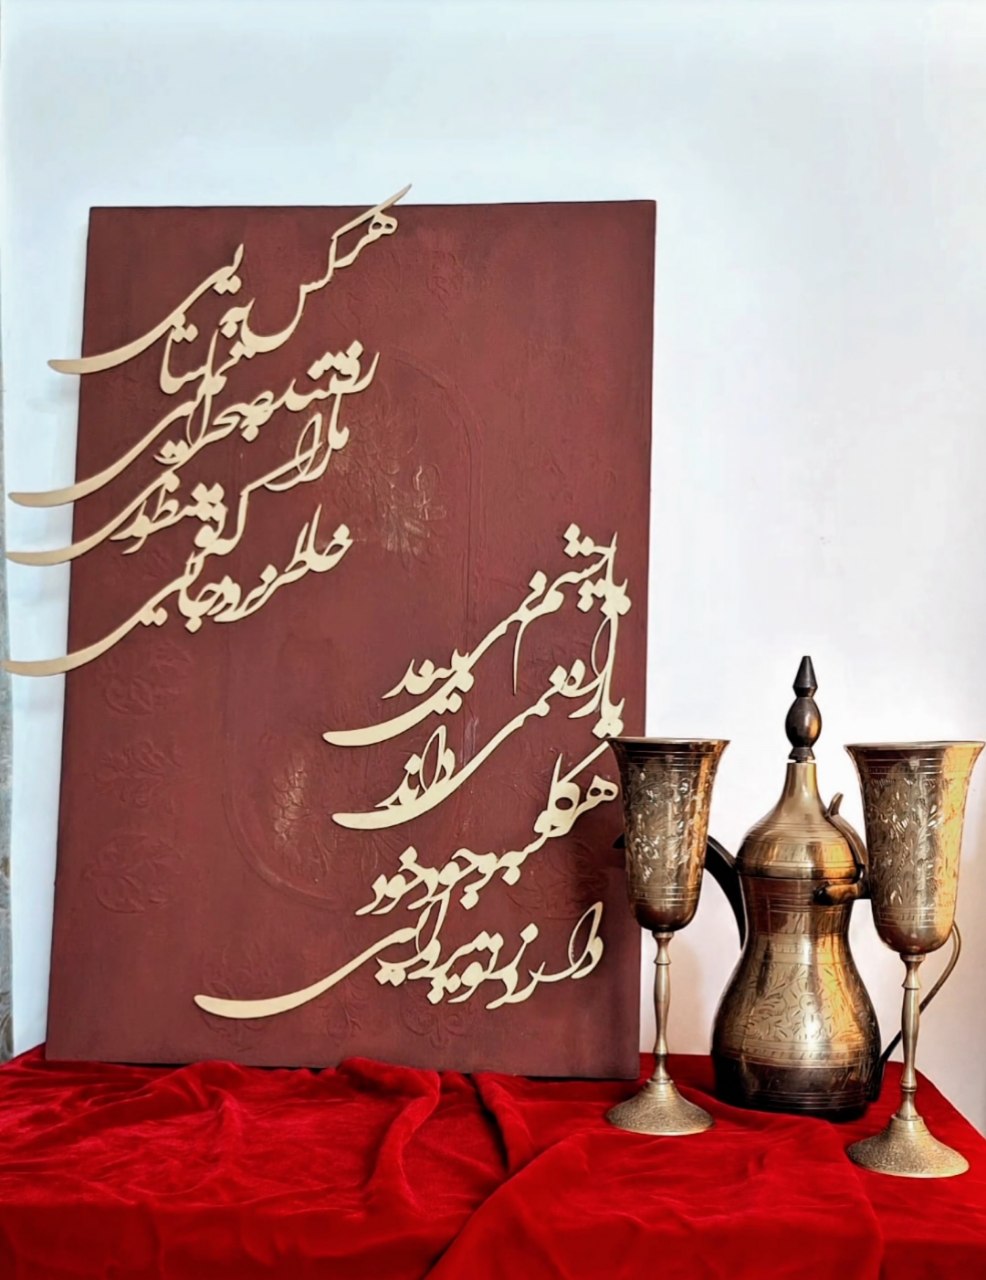 هر کس به تماشایی
رفتند به صحرایی
ما را که تو منظوری
خاطر نرود جایی
یا چشم نمی بیند
یا راه نمی داند
هر کاو به وجود خود
دارد ز تو پروایی